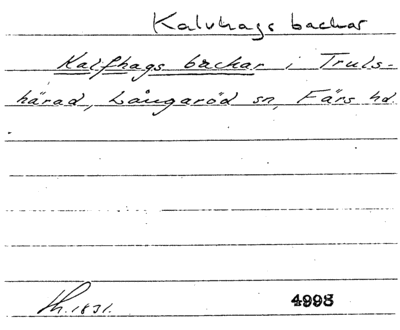 Kalvhags backar
Kalfhags backar i Truls-
härad, Långaröd sn, Färs hd.
Th. 1831.
4998